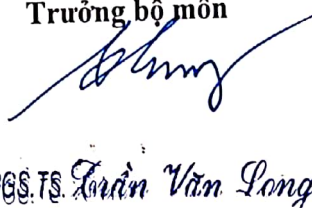 Trưởng bộ môn
PGS.TS. Trần Văn Long